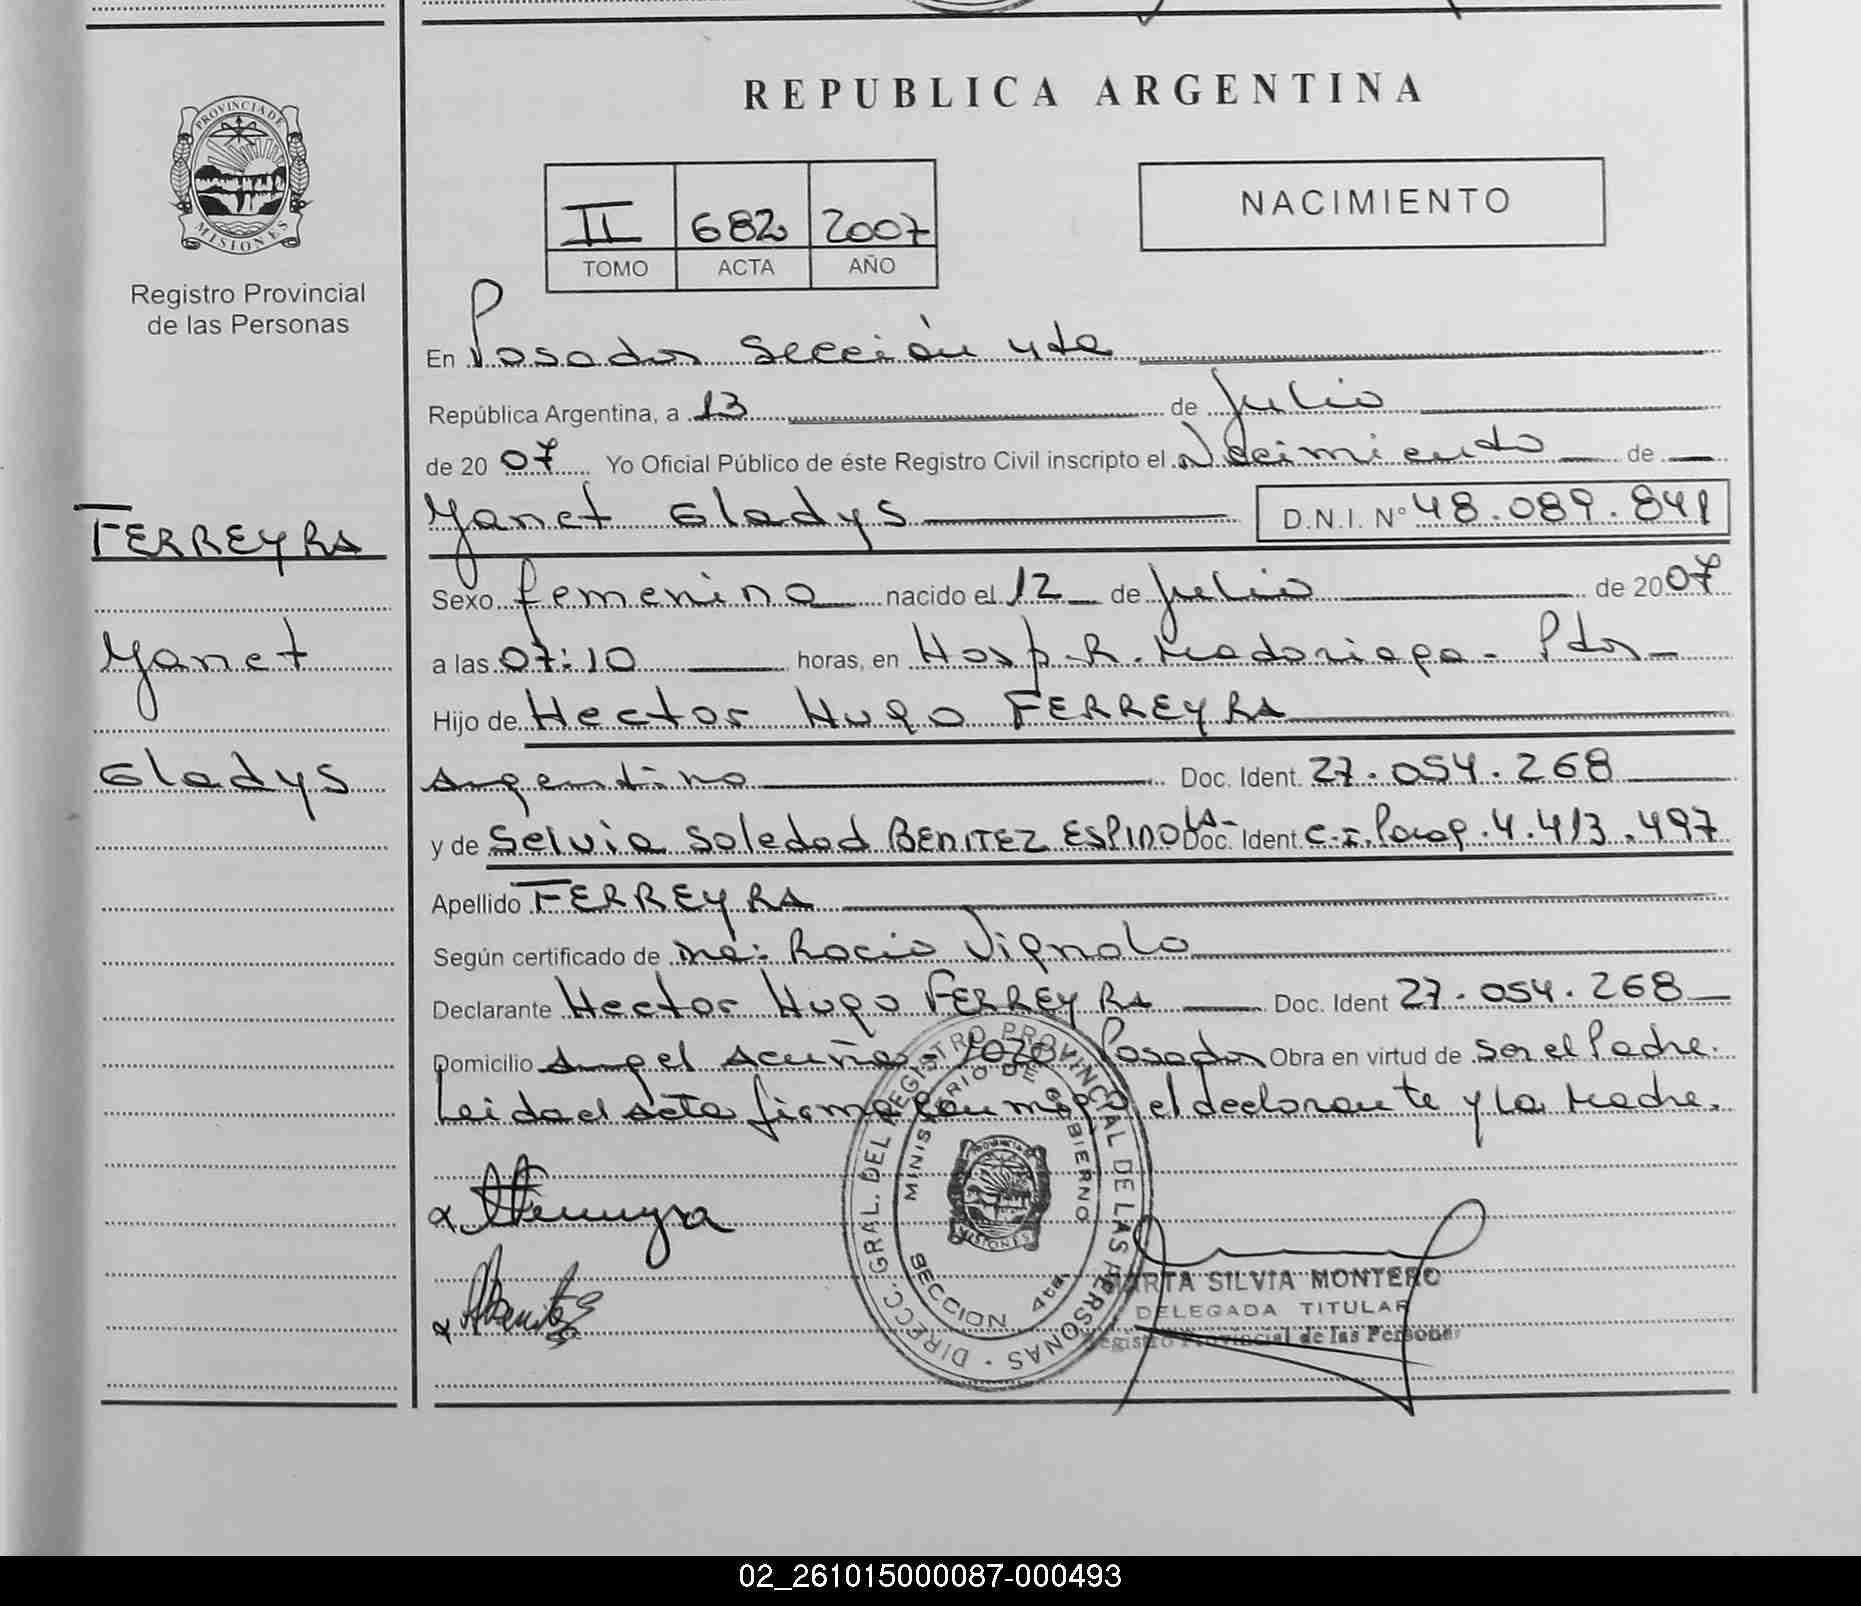 PROVINCIA DE
MISIONES
Registro Provincial
de las Personas
FERREYRA
Yanet
Gladys
REPUBLICA ARGENTINA
II 682 2007
TOMO ACTA AÑO
NACIMIENTO
En Posadas Sección 4ta
República Argentina, a 13 de Julio
de 20 07 Yo Oficial Público de éste Registro Civil inscripto el Nacimiento de
Yanet Gladys D.N.I. Nº 48.089.841
Sexo femenino nacido el 12 de Julio de 20 07
a las 07:10 horas, en Hosp. R. Madariaga - Pdas
Hijo de Hector Hugo FERREYRA
Argentino Doc. Ident. 27.054.268
y de Selvia Soledad BENITEZ ESPINOLA- Doc. Ident. C.I. Parag. 4.413.497
Apellido FERREYRA
Según certificado de me: Rocio Vignolo
Declarante Hector Hugo FERREYRA Doc. Ident 27.054.268
Domicilio Angel Acuña - Posadas Obra en virtud de ser el Padre.
Leida el acta firma conmigo el declarante y la Madre.
DIRECC. GRAL. DEL REGISTRO PROVINCIAL DE LAS PERSONAS
MINISTERIO DE GOBIERNO
SECCION 4ta.
MISIONES
MARTA SILVIA MONTERO
DELEGADA TITULAR
Registro Provincial de las Personas
02_261015000087-000493